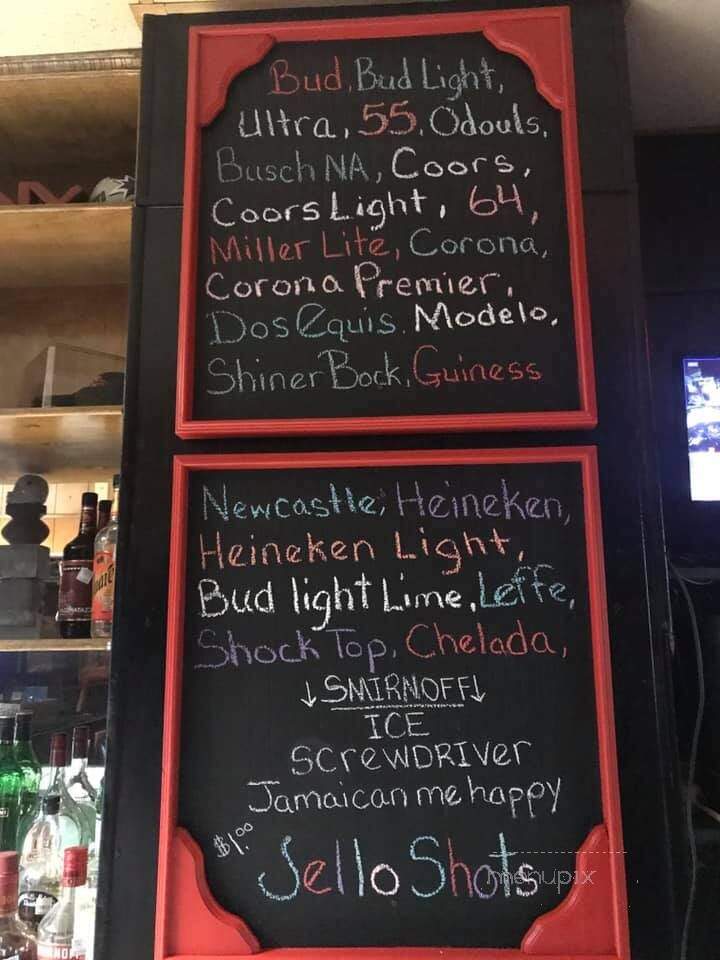 Bud, Bud Light,
Ultra, 55, Odouls,
Busch NA, Coors,
Coors Light, 64,
Miller Lite, Corona,
Corona Premier,
Dos Equis, Modelo,
Shiner Bock, Guiness
Newcastle, Heineken,
Heineken Light,
Bud light Lime, Leffe,
Shock Top, Chelada,
↓SMIRNOFF↓
ICE
SCREWDRIVER
Jamaican me happy
$1.00
Jello Shots
menupix